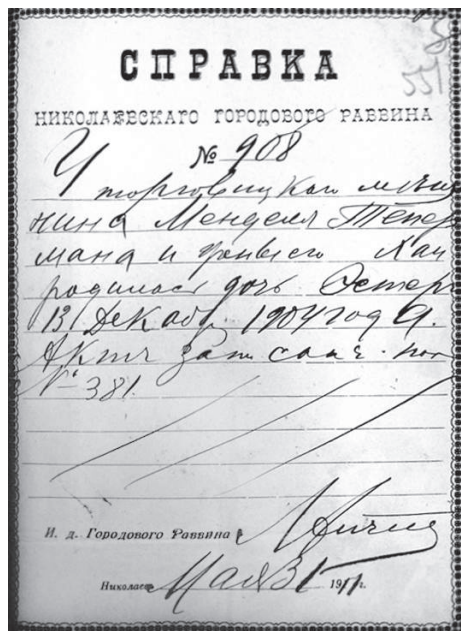 557
СПРАВКА
НИКОЛАЕВСКАГО ГОРОДОВОГО РАВВИНА
№ 908
У торговицкаго меща
нина Менделя Тепер
мана и жены его Хаи
родилась дочь Эстер
13 Декабр. 1904 года.
Актъ записанъ под
№ 381.
И. д. Городового Раввина
Николаев Мая 31 1911 г.